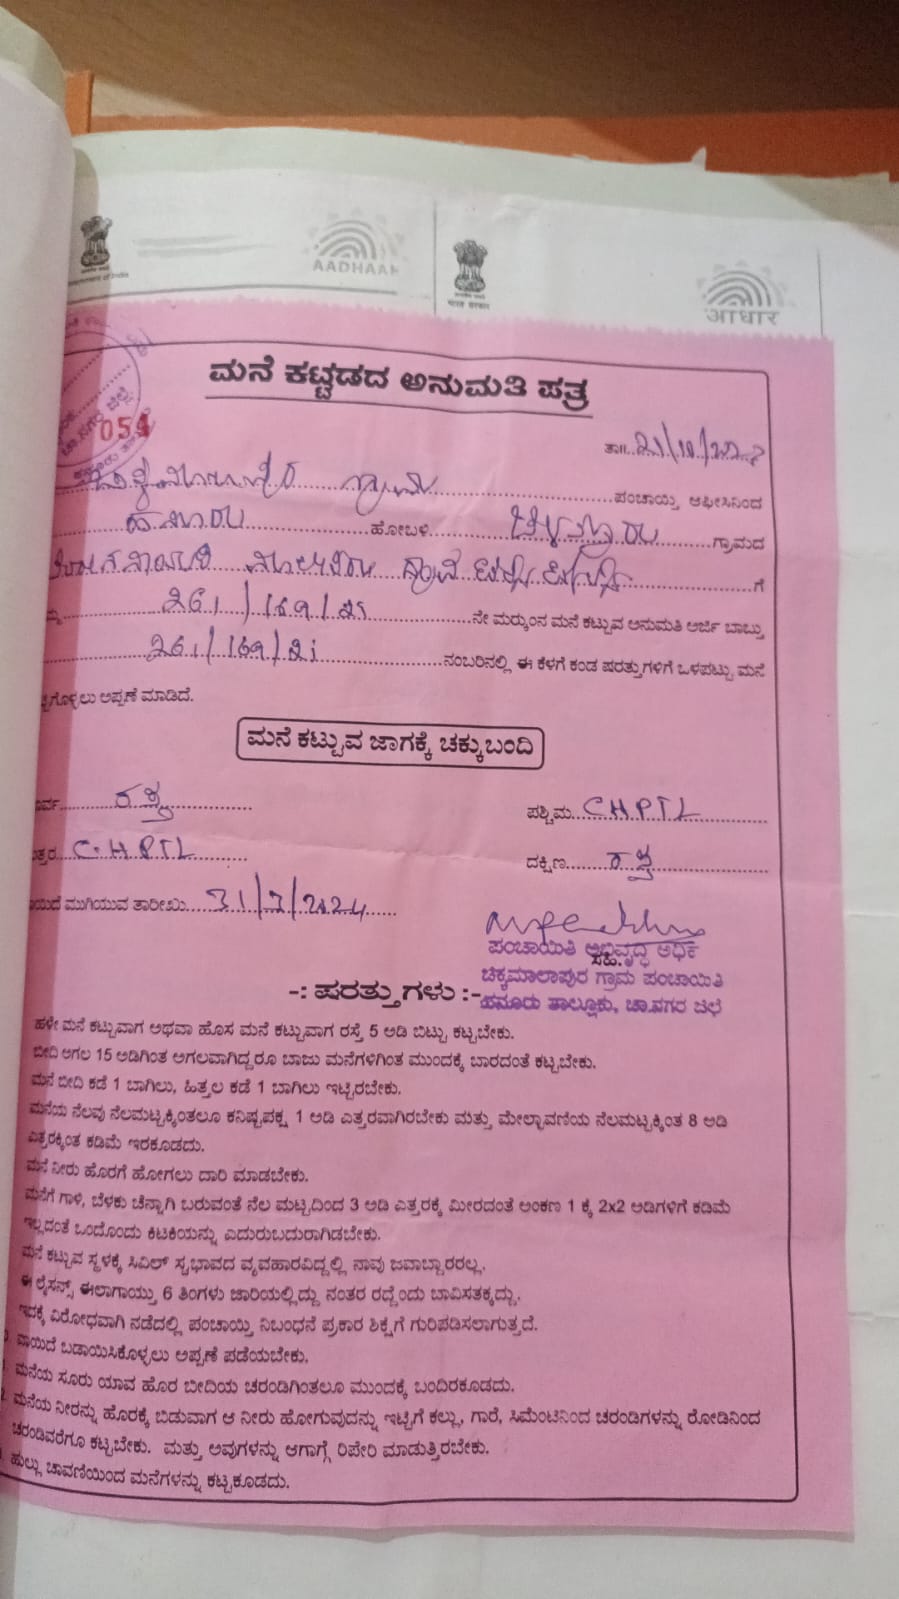 AADHAAR
भारत सरकार
आधार
ಮನೆ ಕಟ್ಟಡದ ಅನುಮತಿ ಪತ್ರ
054
ತಾ॥
ಗ್ರಾಮ ಪಂಚಾಯ್ತಿ ಆಫೀಸಿನಿಂದ
ಹನೂರು ಹೋಬಳಿ ಗ್ರಾಮದ
ಗೆ
261/169/21 ನೇ ಮರ್‍ಕುಂನ ಮನೆ ಕಟ್ಟುವ ಅನುಮತಿ ಅರ್ಜಿ ಬಾಬ್ತು
261/169/21 ನಂಬರಿನಲ್ಲಿ ಈ ಕೆಳಗೆ ಕಂಡ ಷರತ್ತುಗಳಿಗೆ ಒಳಪಟ್ಟು ಮನೆ
ಅಪ್ಪಣೆ ಮಾಡಿದೆ.
ಮನೆ ಕಟ್ಟುವ ಜಾಗಕ್ಕೆ ಚಕ್ಕುಬಂದಿ
ರಸ್ತೆ ಪಶ್ಚಿಮ CHPTL
C.H.PTL ದಕ್ಷಿಣ ರಸ್ತೆ
ಮುಗಿಯುವ ತಾರೀಖು 31/3/2024
ಪಂಚಾಯಿತಿ ಅಭಿವೃದ್ಧಿ
ಚಿಕ್ಕಮಾಲಾಪುರ ಗ್ರಾಮ ಪಂಚಾಯಿತಿ
ಹನೂರು ತಾಲ್ಲೂಕು, ಚಾ.ನಗರ ಜಿಲ್ಲೆ
-: ಷರತ್ತುಗಳು :-
ಹಳೇ ಮನೆ ಕಟ್ಟುವಾಗ ಅಥವಾ ಹೊಸ ಮನೆ ಕಟ್ಟುವಾಗ ರಸ್ತೆ 5 ಅಡಿ ಬಿಟ್ಟು ಕಟ್ಟಬೇಕು.
ಬೀದಿ ಅಗಲ 15 ಅಡಿಗಿಂತ ಅಗಲವಾಗಿದ್ದರೂ ಬಾಜು ಮನೆಗಳಿಗಿಂತ ಮುಂದಕ್ಕೆ ಬಾರದಂತೆ ಕಟ್ಟಬೇಕು.
ಮನೆ ಬೀದಿ ಕಡೆ 1 ಬಾಗಿಲು, ಹಿತ್ತಲ ಕಡೆ 1 ಬಾಗಿಲು ಇಟ್ಟಿರಬೇಕು.
ಮನೆಯ ನೆಲವು ನೆಲಮಟ್ಟಕ್ಕಿಂತಲೂ ಕನಿಷ್ಟಪಕ್ಷ 1 ಅಡಿ ಎತ್ತರವಾಗಿರಬೇಕು ಮತ್ತು ಮೇಲ್ಛಾವಣಿಯ ನೆಲಮಟ್ಟಕ್ಕಿಂತ 8 ಅಡಿ
ಎತ್ತರಕ್ಕಿಂತ ಕಡಿಮೆ ಇರಕೂಡದು.
ಮನೆ ನೀರು ಹೊರಗೆ ಹೋಗಲು ದಾರಿ ಮಾಡಬೇಕು.
ಮನೆಗೆ ಗಾಳಿ, ಬೆಳಕು ಚೆನ್ನಾಗಿ ಬರುವಂತೆ ನೆಲ ಮಟ್ಟದಿಂದ 3 ಅಡಿ ಎತ್ತರಕ್ಕೆ ಮೀರದಂತೆ ಅಂಕಣ 1 ಕ್ಕೆ 2x2 ಅಡಿಗಳಿಗೆ ಕಡಿಮೆ
ಇಲ್ಲದಂತೆ ಒಂದೊಂದು ಕಿಟಕಿಯನ್ನು ಎದುರುಬದುರಾಗಿಡಬೇಕು.
ಮನೆ ಕಟ್ಟುವ ಸ್ಥಳಕ್ಕೆ ಸಿವಿಲ್ ಸ್ವಭಾವದ ವ್ಯವಹಾರವಿದ್ದಲ್ಲಿ ನಾವು ಜವಾಬ್ದಾರರಲ್ಲ.
ಈ ಲೈಸನ್ಸ್ ಈಲಾಗಾಯ್ತು 6 ತಿಂಗಳು ಜಾರಿಯಲ್ಲಿದ್ದು ನಂತರ ರದ್ದೆಂದು ಬಾವಿಸತಕ್ಕದ್ದು.
ಇದಕ್ಕೆ ವಿರೋಧವಾಗಿ ನಡೆದಲ್ಲಿ ಪಂಚಾಯ್ತಿ ನಿಬಂಧನೆ ಪ್ರಕಾರ ಶಿಕ್ಷೆಗೆ ಗುರಿಪಡಿಸಲಾಗುತ್ತದೆ.
ವಾಯಿದೆ ಬಡಾಯಿಸಿಕೊಳ್ಳಲು ಅಪ್ಪಣೆ ಪಡೆಯಬೇಕು.
ಮನೆಯ ಸೂರು ಯಾವ ಹೊರ ಬೀದಿಯ ಚರಂಡಿಗಿಂತಲೂ ಮುಂದಕ್ಕೆ ಬಂದಿರಕೂಡದು.
ಮನೆಯ ನೀರನ್ನು ಹೊರಕ್ಕೆ ಬಿಡುವಾಗ ಆ ನೀರು ಹೋಗುವುದನ್ನು ಇಟ್ಟಿಗೆ ಕಲ್ಲು, ಗಾರೆ, ಸಿಮೆಂಟಿನಿಂದ ಚರಂಡಿಗಳನ್ನು ರೋಡಿನಿಂದ
ಚರಂಡಿವರೆಗೂ ಕಟ್ಟಬೇಕು. ಮತ್ತು ಅವುಗಳನ್ನು ಆಗಾಗ್ಗೆ ರಿಪೇರಿ ಮಾಡುತ್ತಿರಬೇಕು.
ಹುಲ್ಲು ಚಾವಣಿಯಿಂದ ಮನೆಗಳನ್ನು ಕಟ್ಟಕೂಡದು.